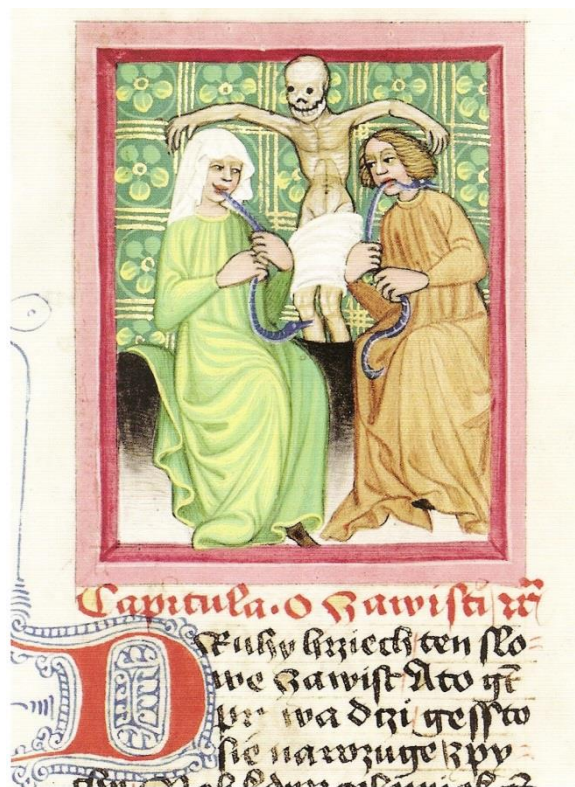 Capitula. O zawisti
Druhy hrziech ten slo=
we zawist A to gt
pr wa dczi gessto
sie narozuge z py